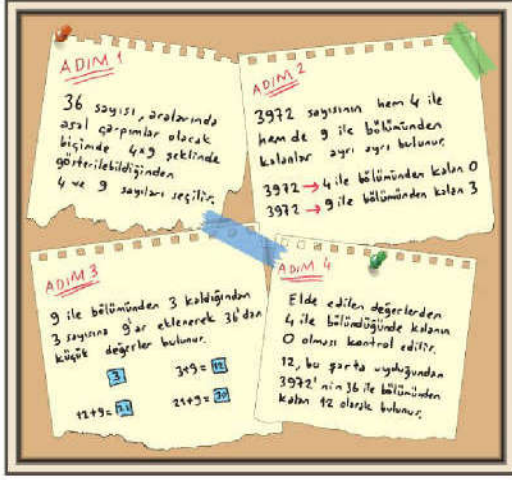 ADIM 1
36 sayısı, aralarında
asal çarpımlar olacak
biçimde 4x9 şeklinde
gösterilebildiğinden
4 ve 9 sayıları seçilir.
ADIM 2
3972 sayısının hem 4 ile
hem de 9 ile bölümünden
kalanlar ayrı ayrı bulunur.
3972 → 4 ile bölümünden kalan 0
3972 → 9 ile bölümünden kalan 3
ADIM 3
9 ile bölümünden 3 kaldığından
3 sayısına 9'ar eklenerek 36'dan
küçük değerler bulunur.
3 3+9= 12
12+9= 21 21+9= 30
ADIM 4
Elde edilen değerlerden
4 ile bölündüğünde kalanın
0 olması kontrol edilir.
12, bu şarta uyduğundan
3972'nin 36 ile bölümünden
kalan 12 olarak bulunur.